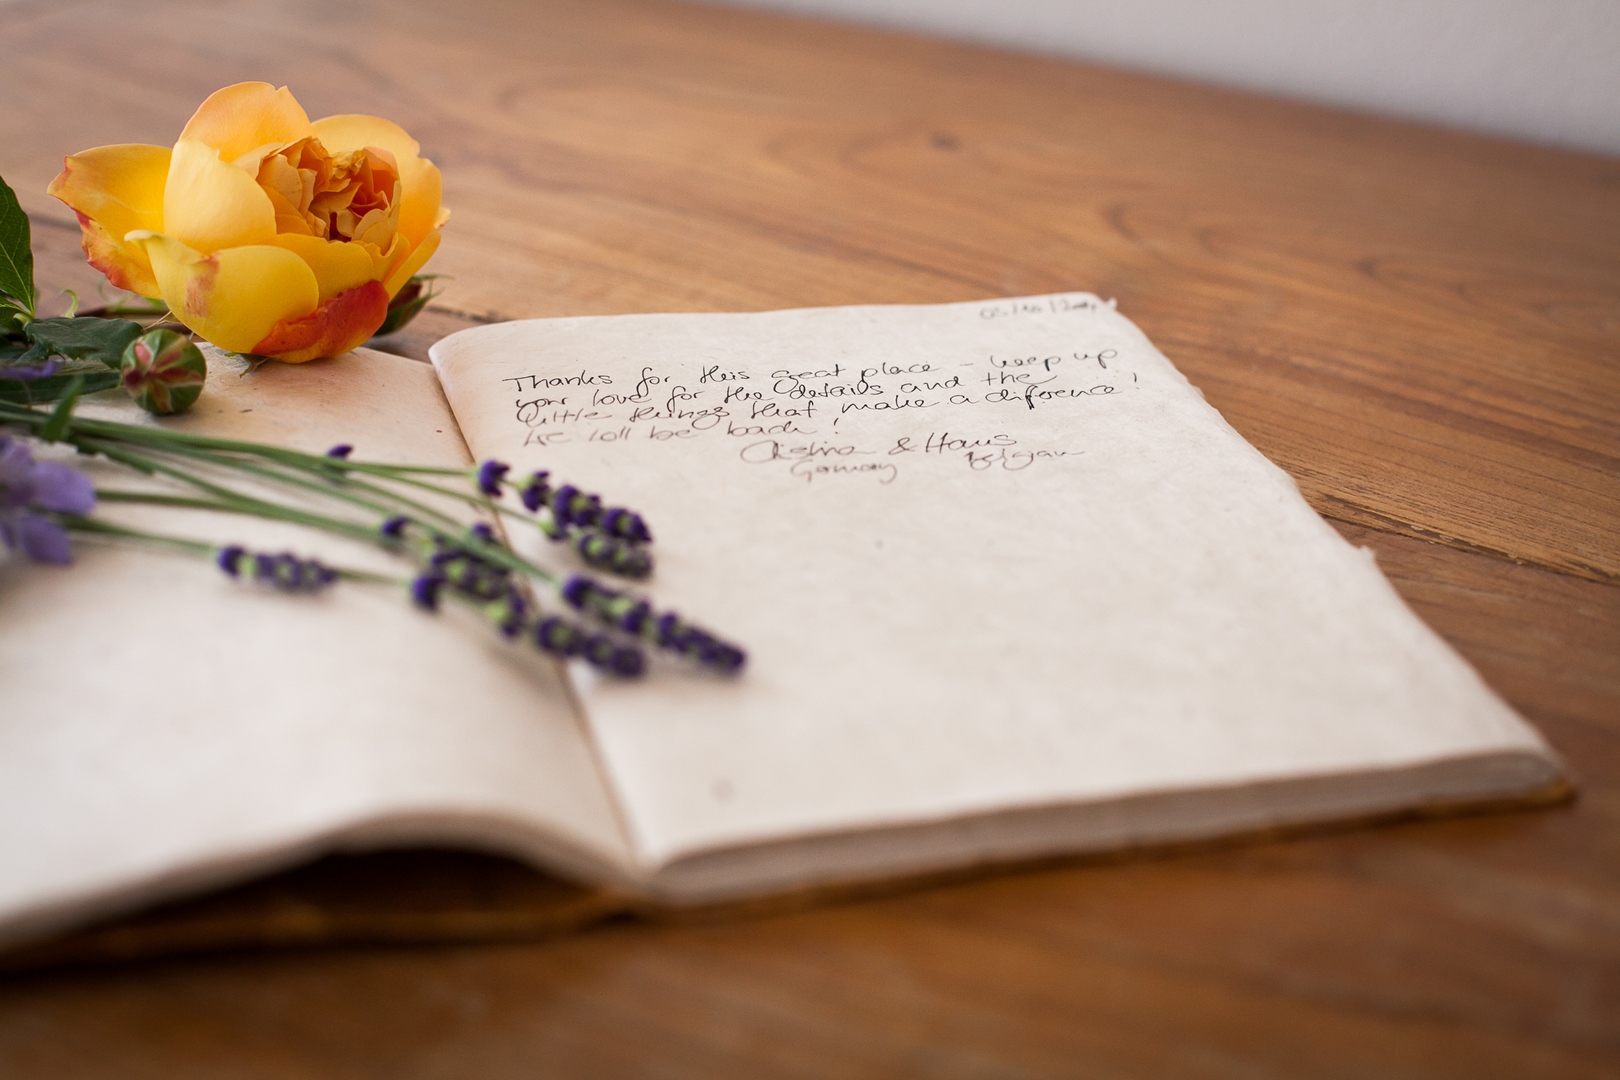 Thanks for this great place - keep up
your love for the details and the
little things that make a difference!
We will be back!
& Hans
Germany Belgian